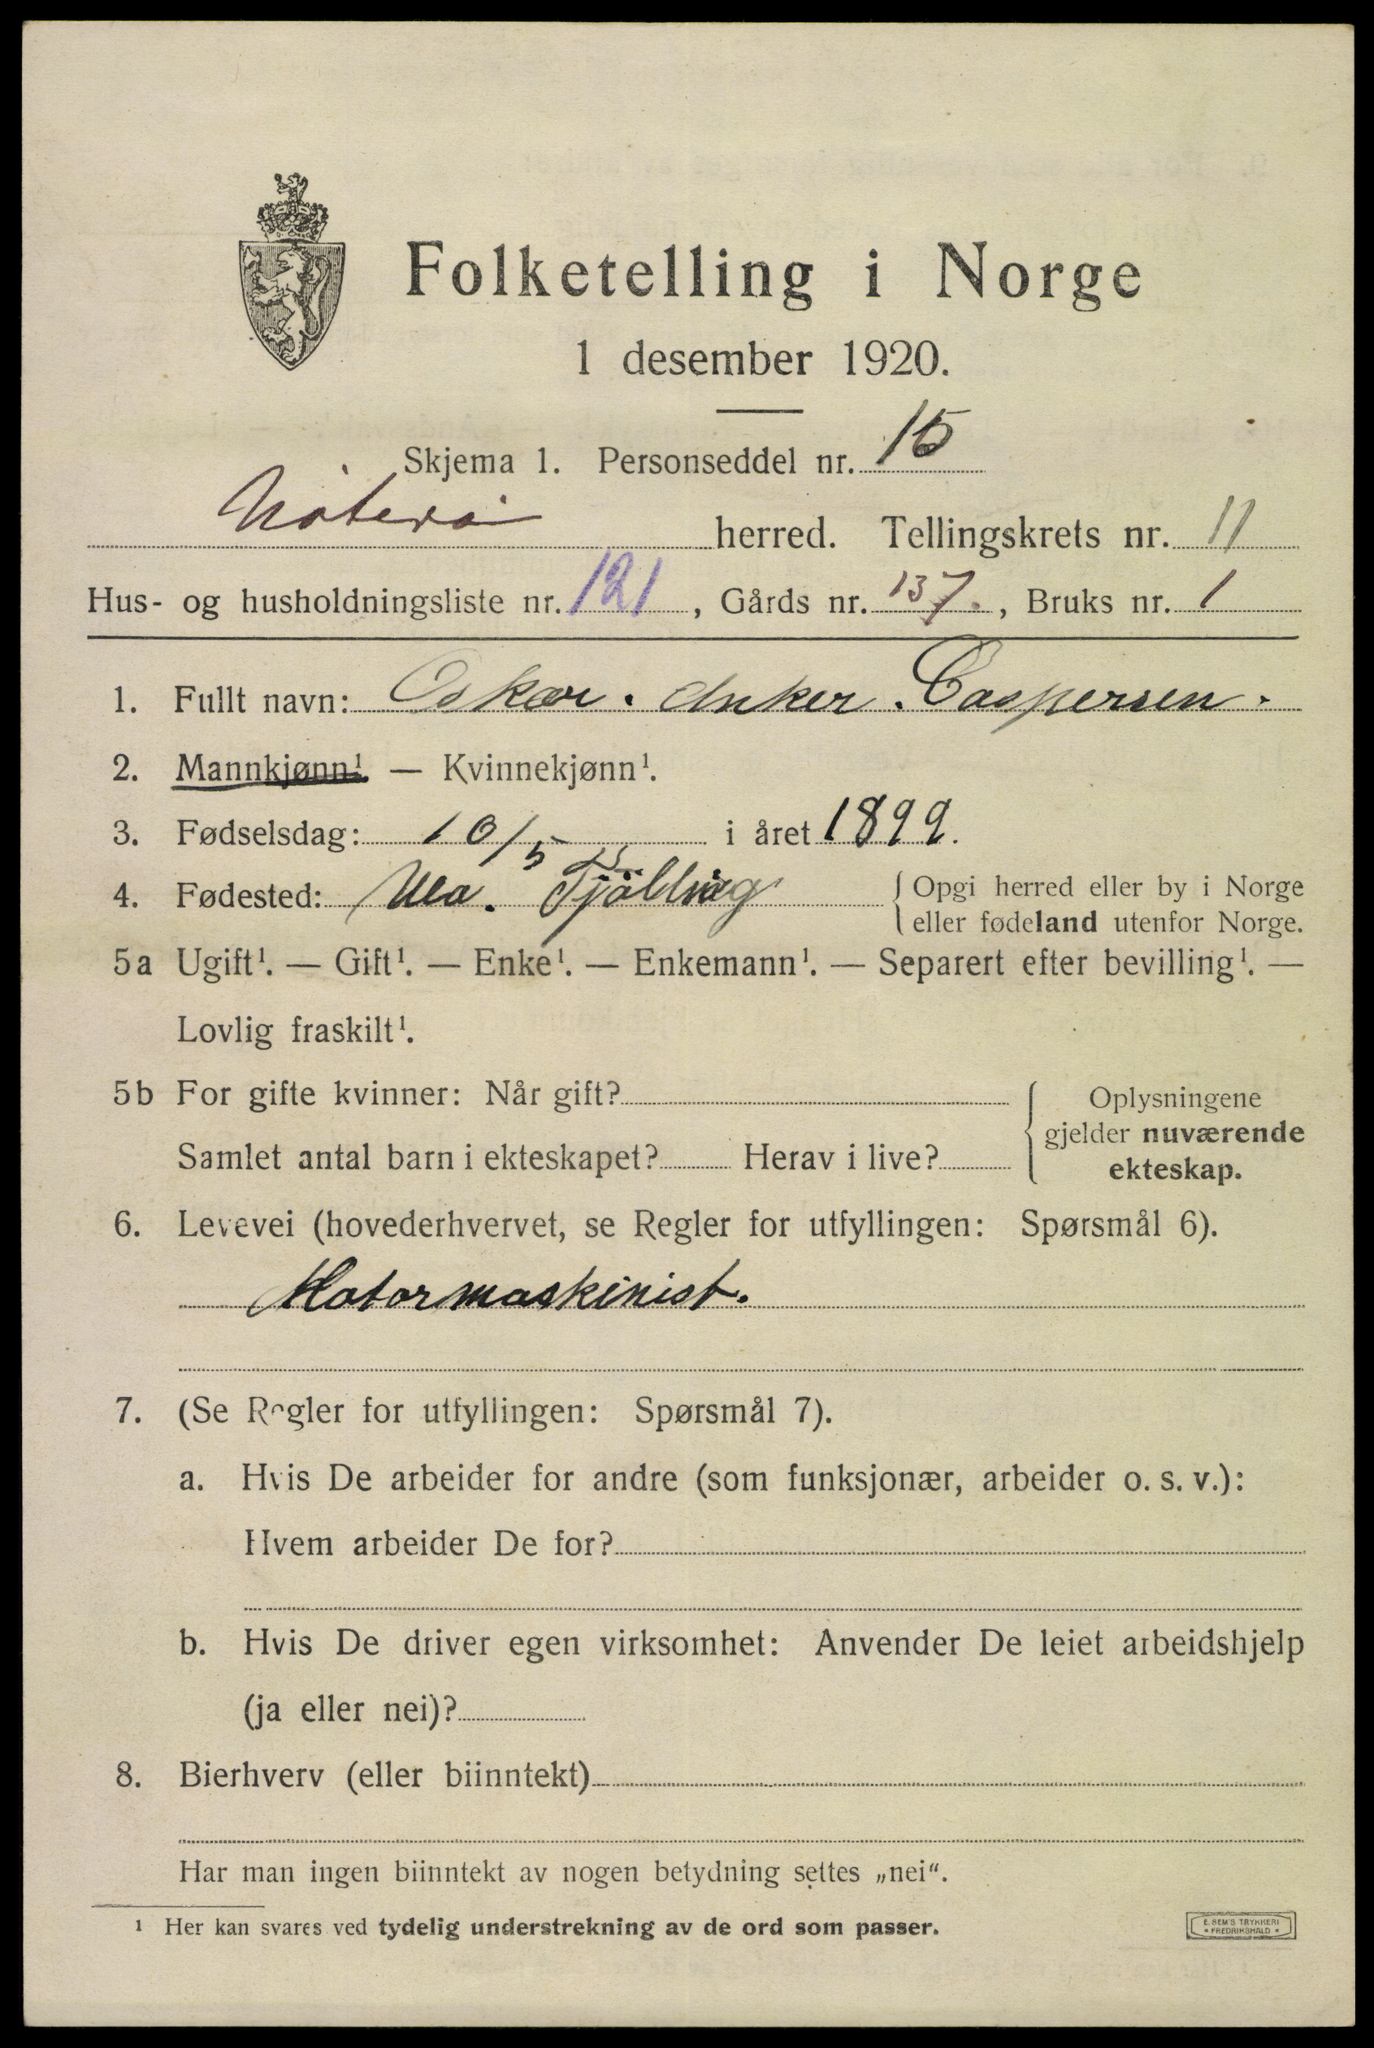 Folketelling i Norge
1 desember 1920.
Skjema 1. Personseddel nr. 15
Nøterø herred. Tellingskrets nr. 11
Hus- og husholdningsliste nr. 121, Gårds nr. 137., Bruks nr. 1
1. Fullt navn: Oskar. Anker. Caspersen.
2. Mannkjønn¹ — Kvinnekjønn¹.
3. Fødselsdag: 10/5 i året 1899.
4. Fødested: Ula. Tjölling {Opgi herred eller by i Norge
eller fødeland utenfor Norge.
5a Ugift¹. — Gift¹. — Enke¹. — Enkemann¹. — Separert efter bevilling¹. —
Lovlig fraskilt¹.
5b For gifte kvinner: Når gift?
Samlet antal barn i ekteskapet? Herav i live?
Oplysningene
gjelder nuværende
ekteskap.
6. Levevei (hovederhvervet, se Regler for utfyllingen: Spørsmål 6).
Motormaskinist.
7. (Se Regler for utfyllingen: Spørsmål 7).
a. Hvis De arbeider for andre (som funksjonær, arbeider o. s. v.):
Hvem arbeider De for?
b. Hvis De driver egen virksomhet: Anvender De leiet arbeidshjelp
(ja eller nei)?
8. Bierhverv (eller biinntekt)
Har man ingen biinntekt av nogen betydning settes „nei“.
¹ Her kan svares ved tydelig understrekning av de ord som passer.
E. SEM'S TRYKKERI
* FREDRIKSHALD *